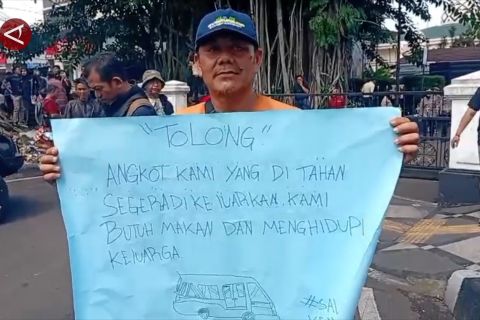 "TOLONG"
ANGKOT KAMI YANG DI TAHAN
SEGERA DI KELUARKAN. KAMI
BUTUH MAKAN DAN MENGHIDUPI
KELUARGA
#SAI